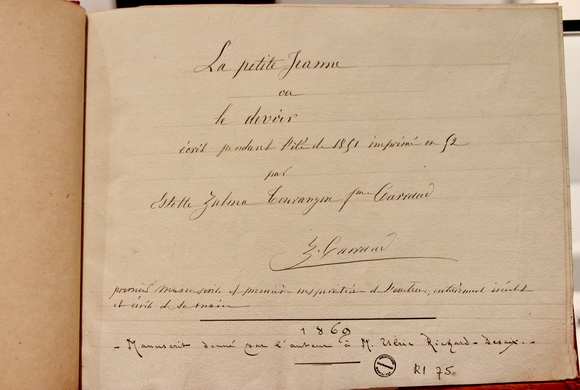 La petite Jeanne
ou
le devoir
écrit pendant l'été de 1851 imprimé en 52
par
Estelle Zulma Tourangin fme Carraud
Z. Carraud
premier manuscrit et première inspiration de l'auteur, entièrement inédit
et écrit de sa main
1869
- Manuscrit donné par l'auteur à M. Ulric Richard-Desaix. -
R1 75